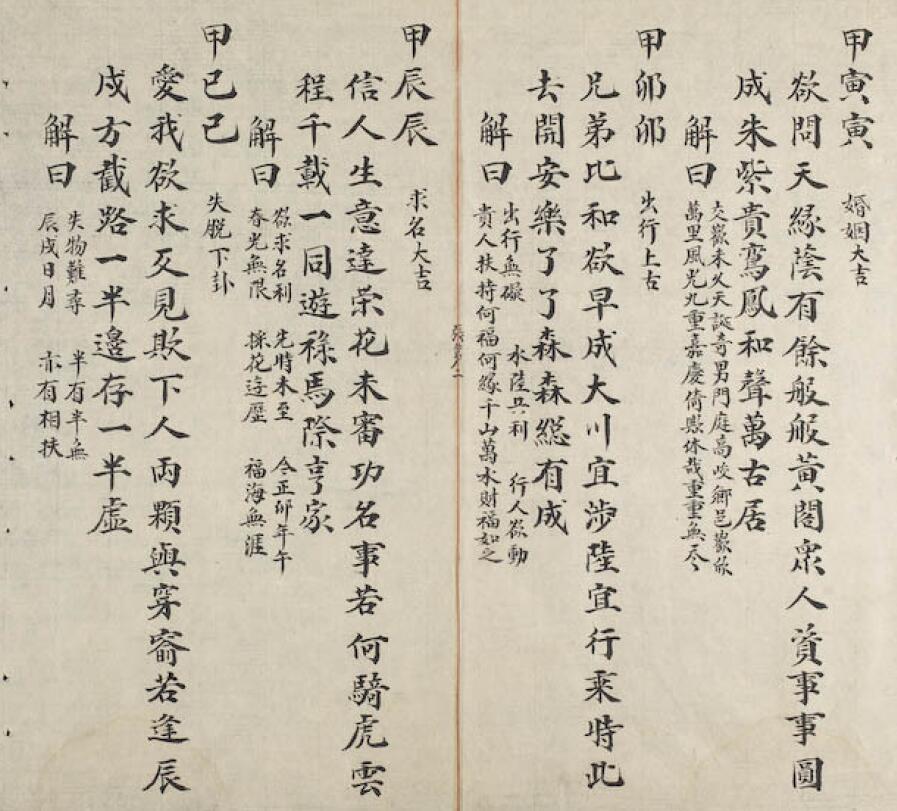 甲寅寅 婚姻大吉
欲問天緣蔭有餘般般黃閣眾人資事事圓
成朱紫貴鸞鳳和聲萬古居
解曰 交歡未久天誕奇男門庭高峻鄉邑歡欣
萬里風光九重嘉慶倚歟休哉重重無尽
甲卯卯 出行上吉
兄弟比和欲早成大川宜涉陸宜行乘時此
去開安樂了了森森總有成
解曰 出行無礙 水陸兵利 行人欲動
貴人扶持何福何緣千山萬水財福如之
甲辰辰 求名大吉
信人生意達荣花未審功名事若何騎虎雲
程千載一同遊祿馬際亨家
解曰 欲求名利 先時未至 今正卯年午
春光無限 採花逢歷 福海無涯
甲巳己 失脫下卦
愛我欲求反見欺下人両顆與穿窬若逢辰
戍方截路一半邉存一半虛
解曰 失物難尋 半有半無
辰戍日月 亦有相扶